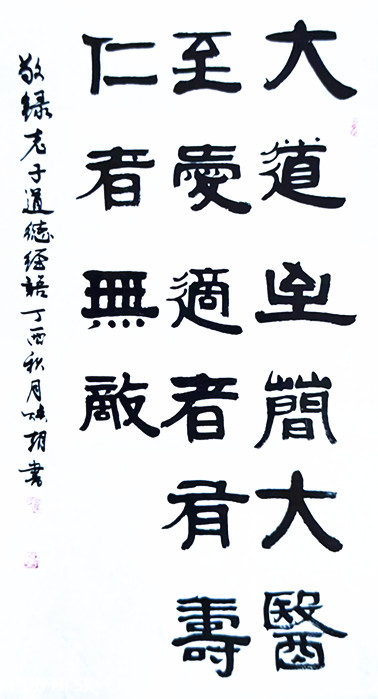 大道至簡大醫
至愛適者有壽
仁者無敵
敬録老子道德經語丁酉秋月煥朝書